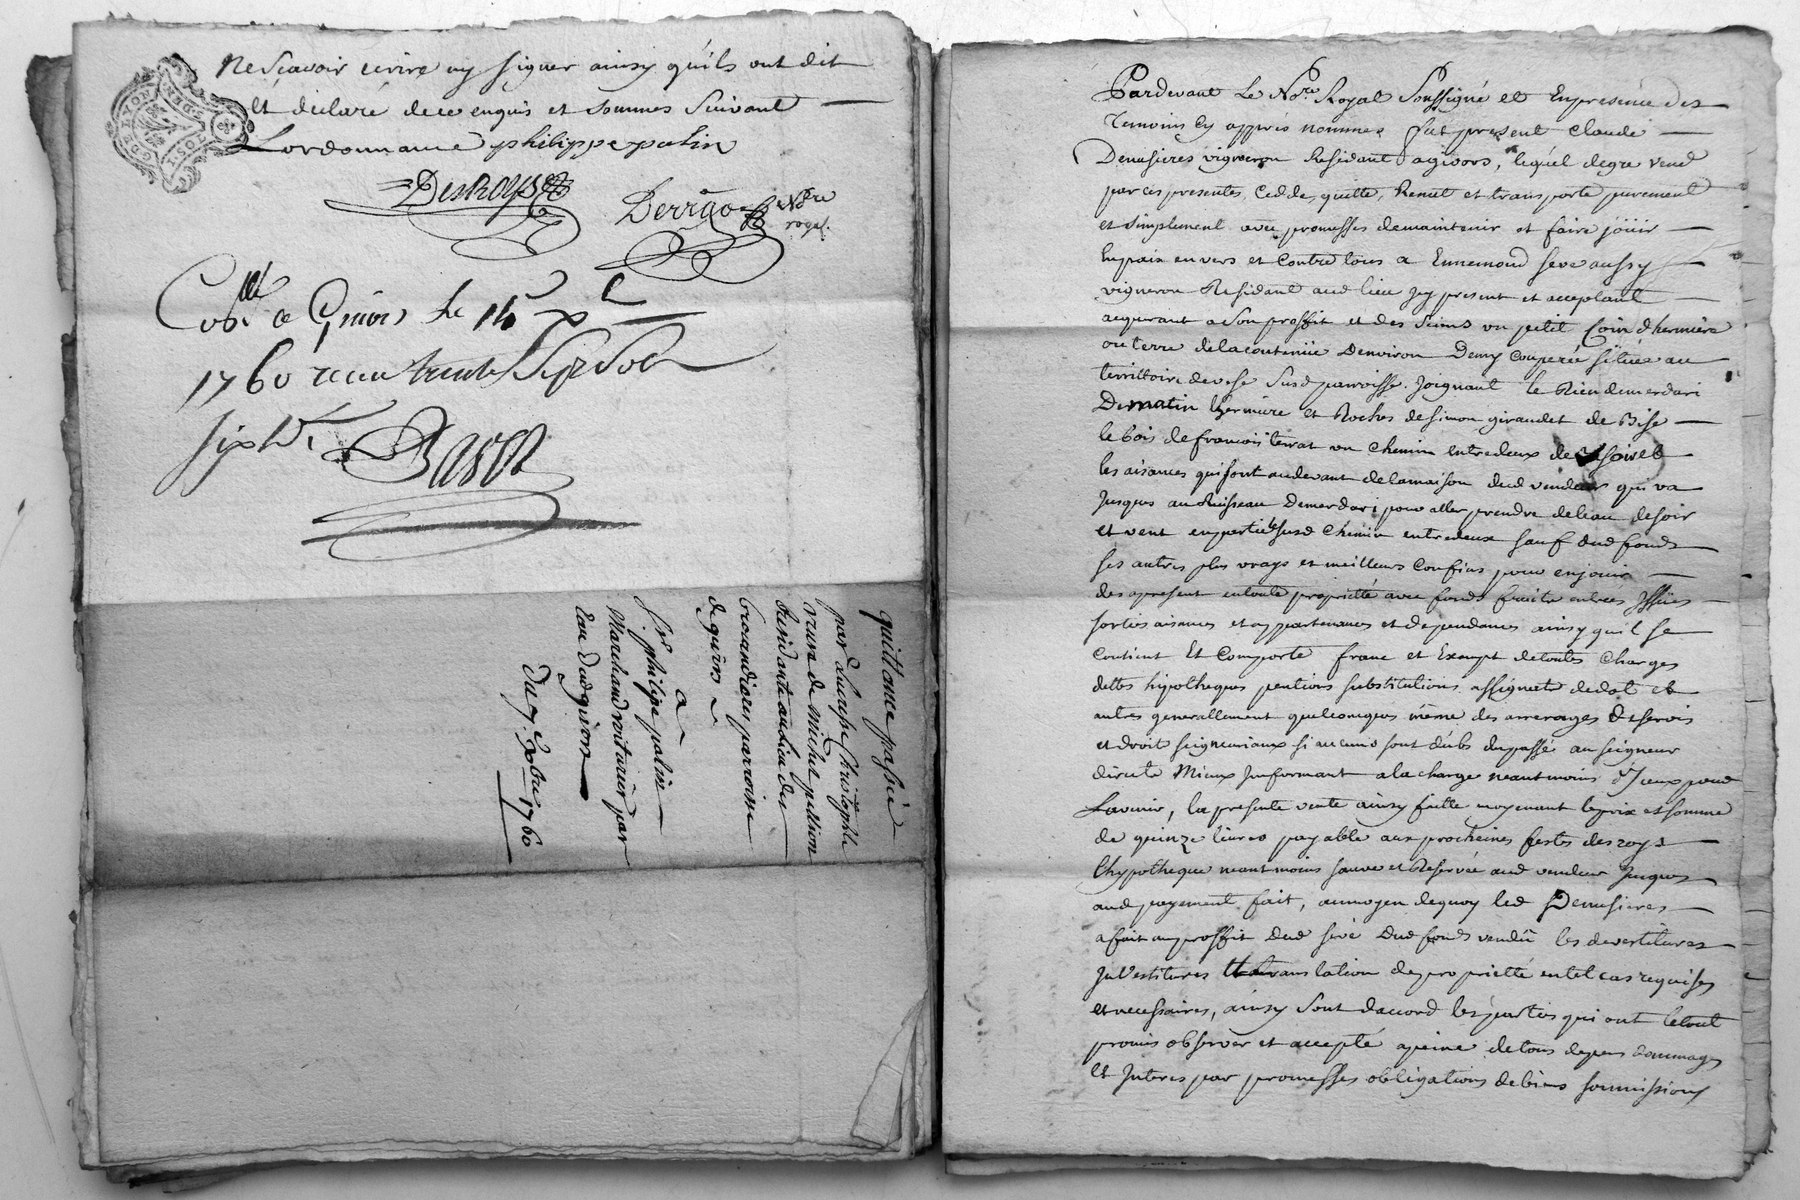 Ne Scavoir ecrire ny signer ainsy quils ont dit
et declaré de ce enquis et sommes Suivant
Lordonnance philippe palin
DesRoys Derrago Nre
royal.
Con.lé a Givors le 15 x
1760 recu trente Sept Sols
six d.
Basset
quittance passée
par Louise
veuve de Michel pillion
Residante au lieu des
brocandieres parroisse
de givors
a
Sr. philipe palin
Marchand voiturier par
Eau dud givors
Du 7. 9bre 1760
Pardevant Le Nore. Royal Soussigné et En presence des
Temoins Cy apprés nommes fut present Claude
Denusieres vigneron Residant a givors, lequel de gre vend
par ces presentes, Cedde, quitte, Remet et transporte purement
et simplement avec promesses de maintenir et faire jöuir
En paix envers et Contre tous a Ennemond seve aussy
vigneron Residant aud lieu Jcy present et acceptant
acquerant a Son proffit et des Siens un petit Coin dhermiere
ou terre de la contenüe Denviron Demy Couperée sitüée au
territoire de vese Susd parroisse. Joignant le Rieu de merdari
De matin hermiere et Roches de simon giraudet de Bise
le bois de francois terrat un Chemin Entredeux de soir et
les aisances qui sont au devant de la maison dud vendeur qui va
Jusques au Ruisseau De merdari pour aller prendre de leau de soir
et vent en partie le susd Chemin entredeux sauf dud fonds
ses autres plus vrays et meilleurs Confins pour en jouir
des apresent en toute proprietté avec fonds fruits entrées Jssües
sorties aisances et appartenances et dependances ainsy quil se
Contient Et Comporte franc et Exempt de toutes Charges
dettes hipotheques pentions substitutions assignat de dot et
autres generallement quelconques même des arrerages de servis
et droit seigneuriaux si aucuns sont dubs du passé au seigneur
directe Mieux Jnformant a la charge neantmoins Dyceux pour
Lavenir, la presente vente ainsy faitte moyenant le prix et somme
de quinze livres payable aux procheines festes des roys
Lhypotheque neantmoins sauve et Reservée aud vendeur Jusques
aud payement fait, au moyen de quoy led Denusieres
a fait au proffit Dud seve Dud fonds vendü les devertitures
JnVestitures et translation de proprietté en tel cas requises
et necessaires, ainsy sont daccord les parties qui ont le tout
promis observer et accepté a peine de tous depens dommages
Et Jnterés par promesses obligations de biens soumissions